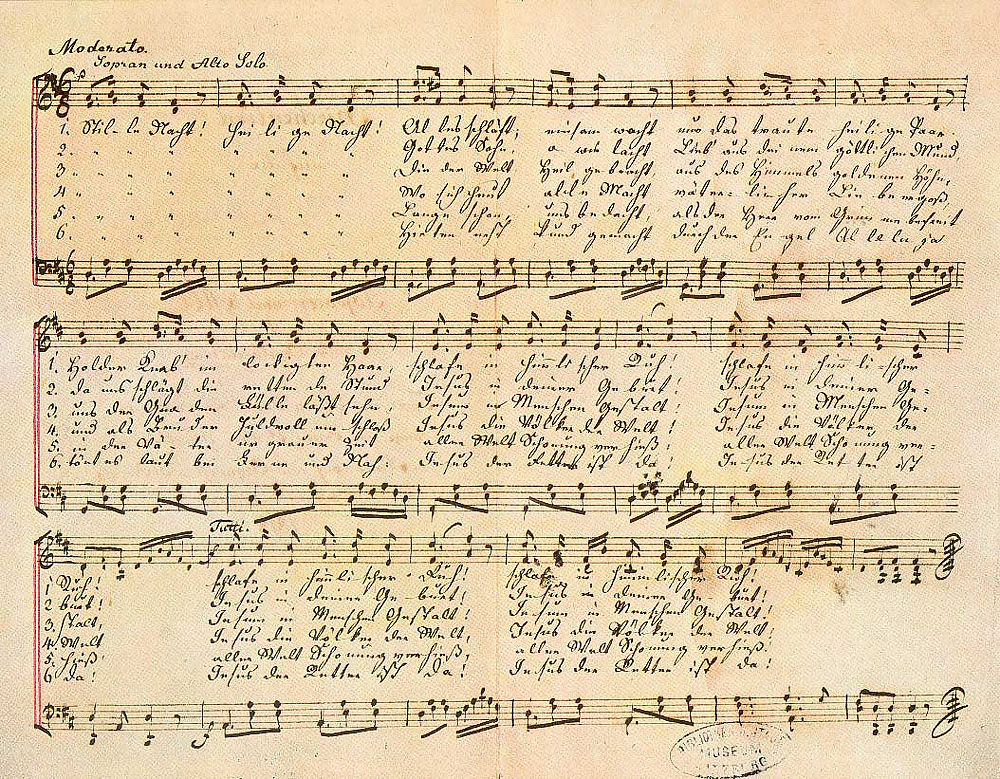 Moderato.
Sopran und Alto Solo
1. Stil-le Nacht! Hei li ge Nacht! Al les schläft; einsam wacht nur das traute heili-ge Paar.
2. " " " " " " " Gottes Sohn, o wie lacht Lieb' aus dei nem göttlichen Mund,
3. " " " " " " " Die der Welt Heil gebracht, aus des Himmels goldenen Höhn,
4. " " " " " " " Wo sich heut alle Macht väter-li-cher Lie-be ergoß,
5. " " " " " " " Lange schon, uns bedacht, als der Herr vom befreit
6. " " " " " " " Hirten erst kund gemacht durch der En-gel Al le lu ja
1. Holder Knab' im lockigten Haar, schlafe in himmlischer Ruh! schlafe in himm-li-scher
2. Da uns schlägt die rettende Stund Jesus in deiner Geburt! Jesus in deiner Ge-
3. uns der Gnaden Fülle läßt sehn, Jesum in Menschen Gestalt! Jesum in Menschen Ge-
4. und als Bruder huldvoll umschloß Jesus die Völker der Welt! Jesus die Völker, der
5. in der Vä-ter urgrauer Zeit aller Welt Schonung verhieß! aller Welt Schonung ver-
6. tönt es laut bei Ferne und Nah: Jesus der Retter ist da! Je-sus der Ret-ter ist
Tutti.
1 Ruh! schlafe in himmlischer Ruh! schlafe in himmlischer Ruh!
2 burt! Jesus in deiner Ge-burt! Jesus in deiner Ge-burt!
3. stalt, Jesum in Menschen Gestalt! Je-sum in Menschen Gestalt!
4 Welt Jesus die Völker der Welt, Jesus die Völker der Welt!
5. hieß! aller Welt Schonung verhieß, aller Welt Schonung verhieß!
6 da! Jesus der Retter ist da! Je-sus der Retter ist da!
MUSEUM